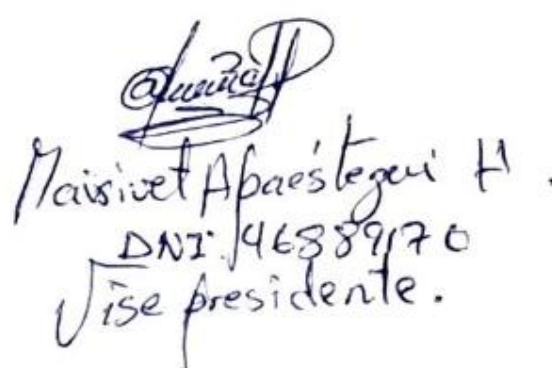 Maisivet Apaéstegui H.
DNI: 46889170
Vise presidente.